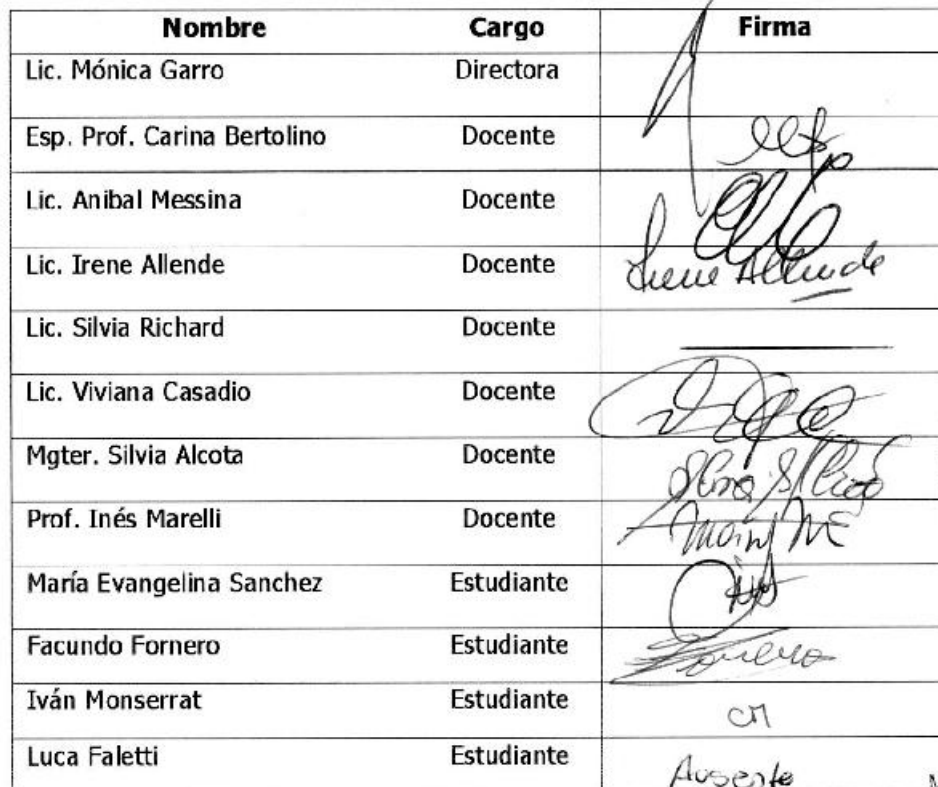 Nombre Cargo Firma
Lic. Mónica Garro Directora
Esp. Prof. Carina Bertolino Docente
Lic. Anibal Messina Docente
Lic. Irene Allende Docente Irene Allende
Lic. Silvia Richard Docente
Lic. Viviana Casadio Docente
Mgter. Silvia Alcota Docente
Prof. Inés Marelli Docente
María Evangelina Sanchez Estudiante
Facundo Fornero Estudiante Fornero
Iván Monserrat Estudiante
Luca Faletti Estudiante Ausente